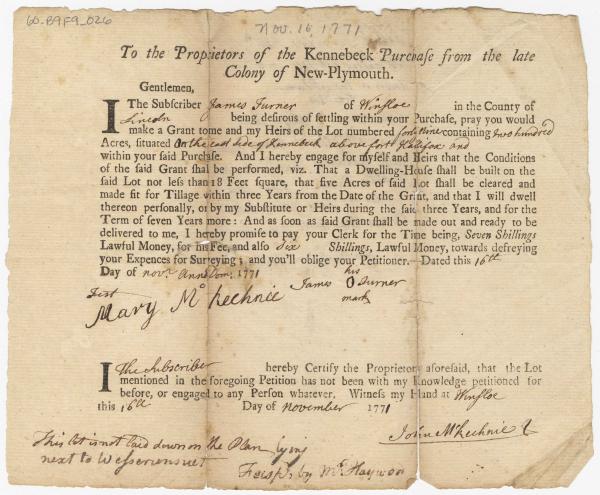 60-B9F9_026
Nov. 16, 1771
To the Proprietors of the Kennebeck Purchase from the late
Colony of New-Plymouth.
Gentlemen,
I The Subscriber James Turner of Winsloe in the County of
Lincoln being desirous of settling within your Purchase, pray you would
make a Grant to me and my Heirs of the Lot numbered forty Nine containing two hundred
Acres, situated On the east side of Kennebeck above fort Hallifax and
within your said Purchase. And I hereby engage for myself and Heirs that the Conditions
of the said Grant shall be performed, viz. That a Dwelling-House shall be built on the
said Lot not less than 18 Feet square, that five Acres of said Lot shall be cleared and
made fit for Tillage within three Years from the Date of the Grant, and that I will dwell
thereon personally, or by my Substitute or Heirs during the said three Years, and for the
Term of seven Years more: And as soon as said Grant shall be made out and ready to be
delivered to me, I hereby promise to pay your Clerk for the Time being, Seven Shillings
Lawful Money, for his Fee, and also Six Shillings, Lawful Money, towards defreying
your Expences for Surveying; and you'll oblige your Petitioner.—Dated this 16th
Day of novr. Anno Dom: 1771
his
James O Turner
mark
Test
Mary McKechnie
I The Subscriber hereby Certify the Proprietors aforesaid, that the Lot
mentioned in the foregoing Petition has not been with my Knowledge petitioned for
before, or engaged to any Person whatever. Witness my Hand at Winsloe
this 16th Day of November 1771
John McKechnie
This lot is not laid down on the Plan lying
next to
by Mr. Haywood